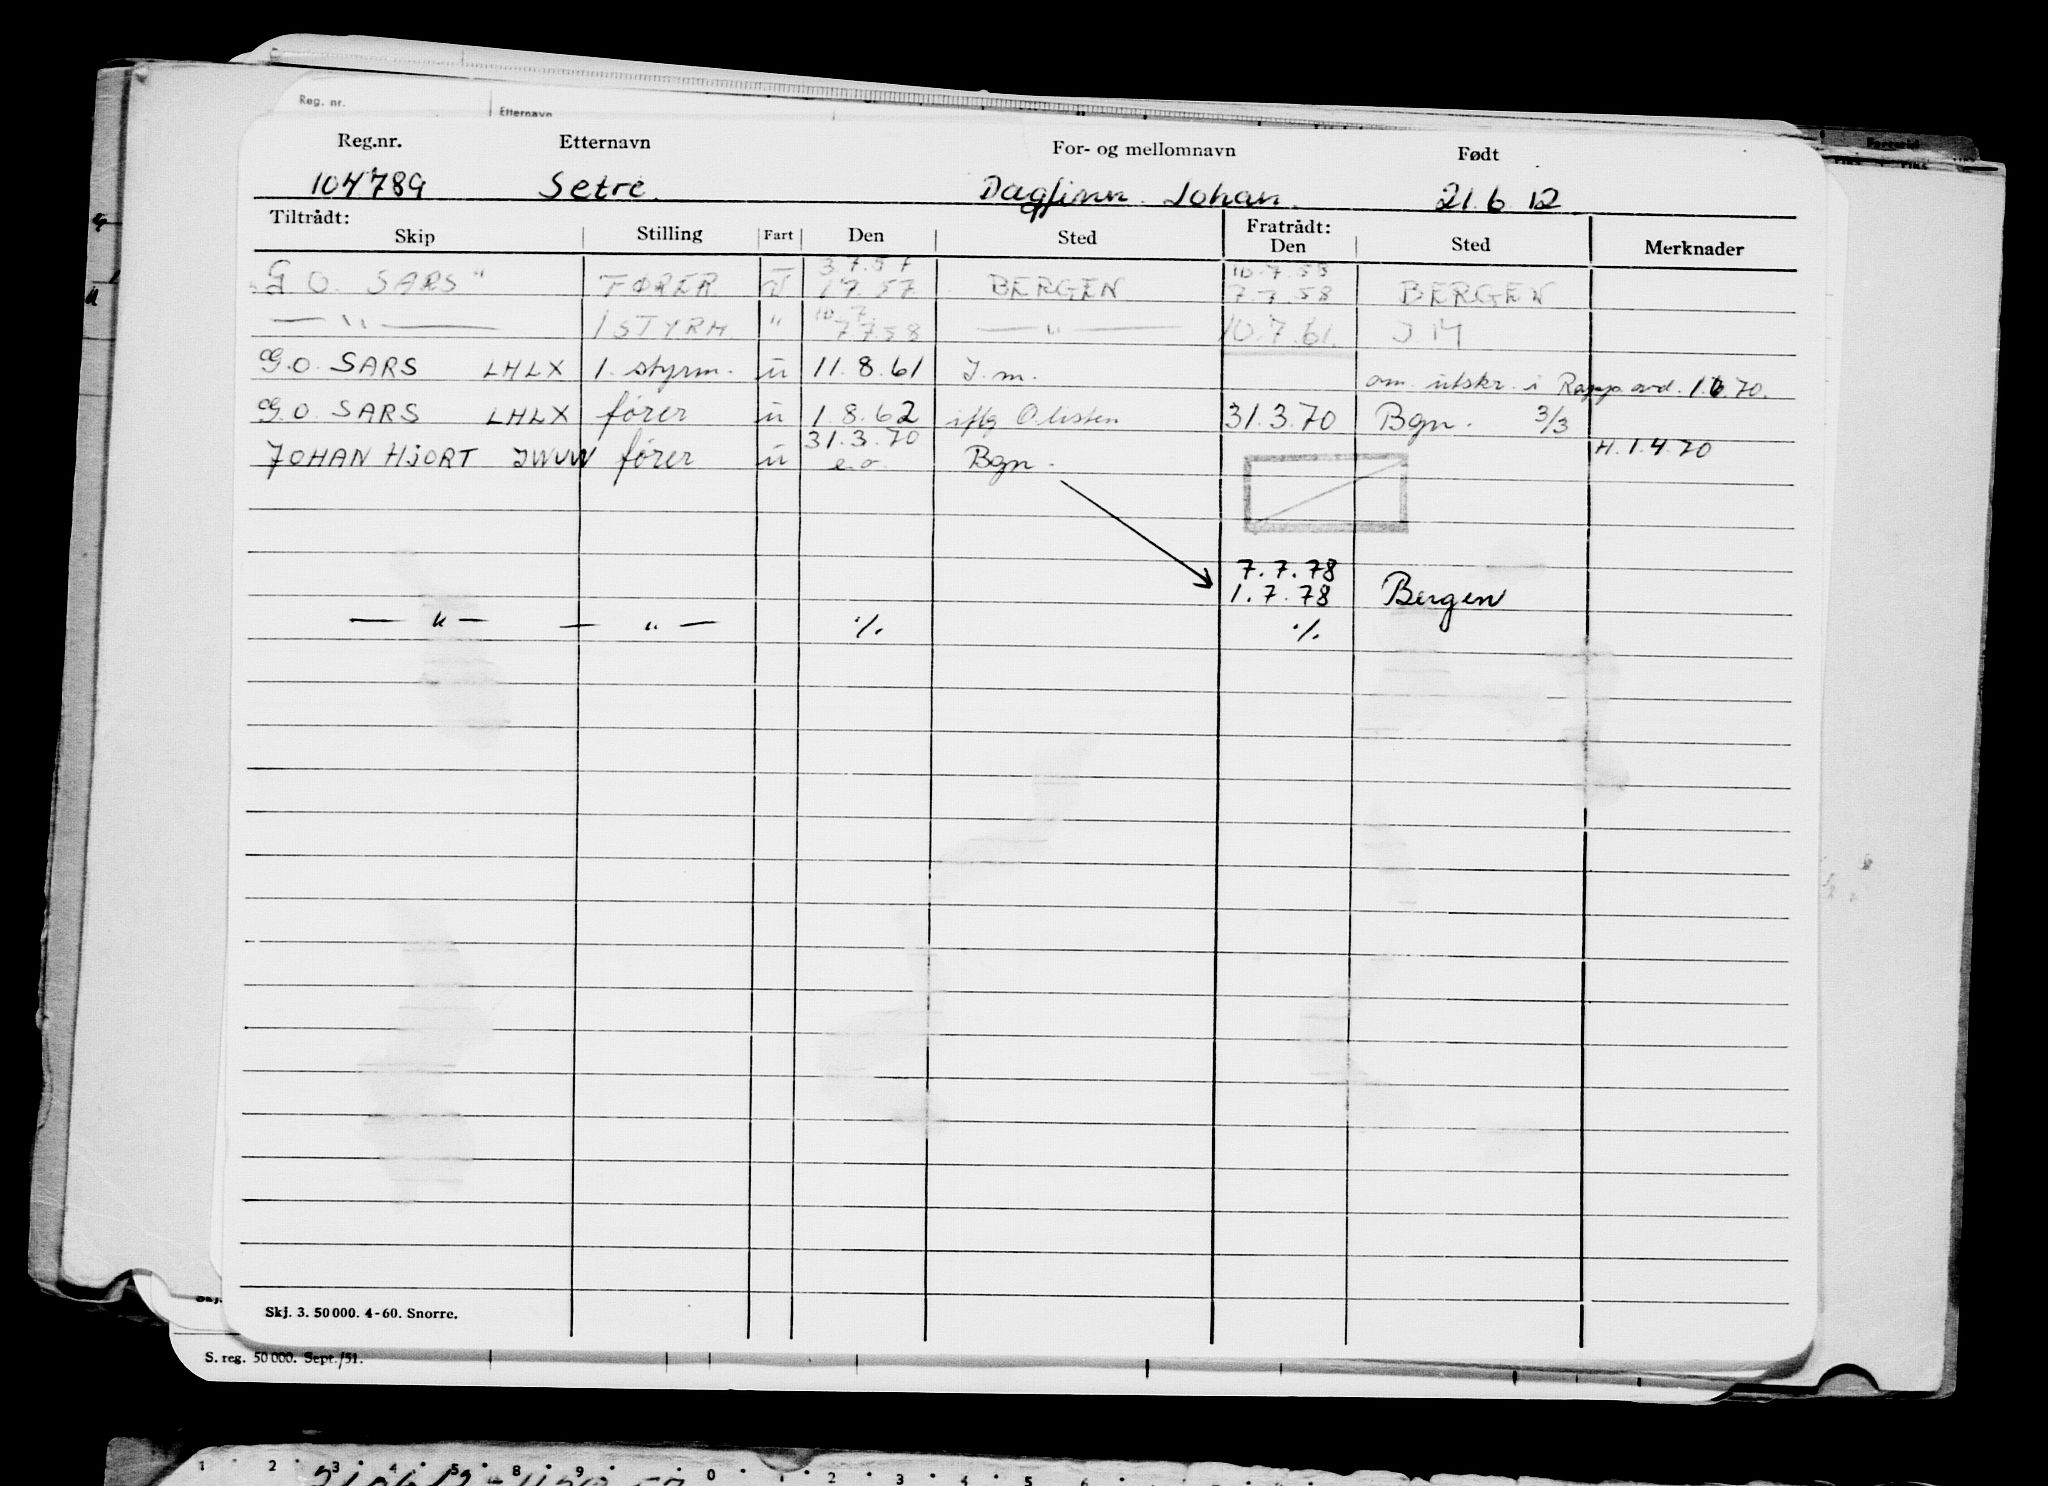 Reg. nr. Etternavn
Reg.nr. Etternavn For- og mellomnavn Født
104789 Setre. Dagfinn Johan. 21.6.12
Tiltrådt: Fratrådt:
Skip Stilling Fart Den Sted Den Sted Merknader
3.7.57 10.7.58
G O. SARS" FØRER U 1 7 57 BERGEN 7.7.58 BERGEN
10.7.
— " — 1 STYRM. " 7 7 58 — " — 10.7.61. J.M
G.O. SARS LHLX 1. styrm. u 11.8.61 J.m. om. utskr. i Rapp.avd. 1.6.70.
G.O. SARS LHLX fører u 1.8.62 iflg O.listen 31.3.70 Bgn. 3/3
31.3.70 H.1.4.70
JOHAN HJORT JWUW fører u e.o. Bgn.
7.7.78
1.7.78 Bergen
— " — — " — ./. ./.
Skj. 3. 50 000. 4-60. Snorre.
S. reg. 50 000. Sept./51.
1 2 3 4 5 8 9 0 1 2 3 4 5 6